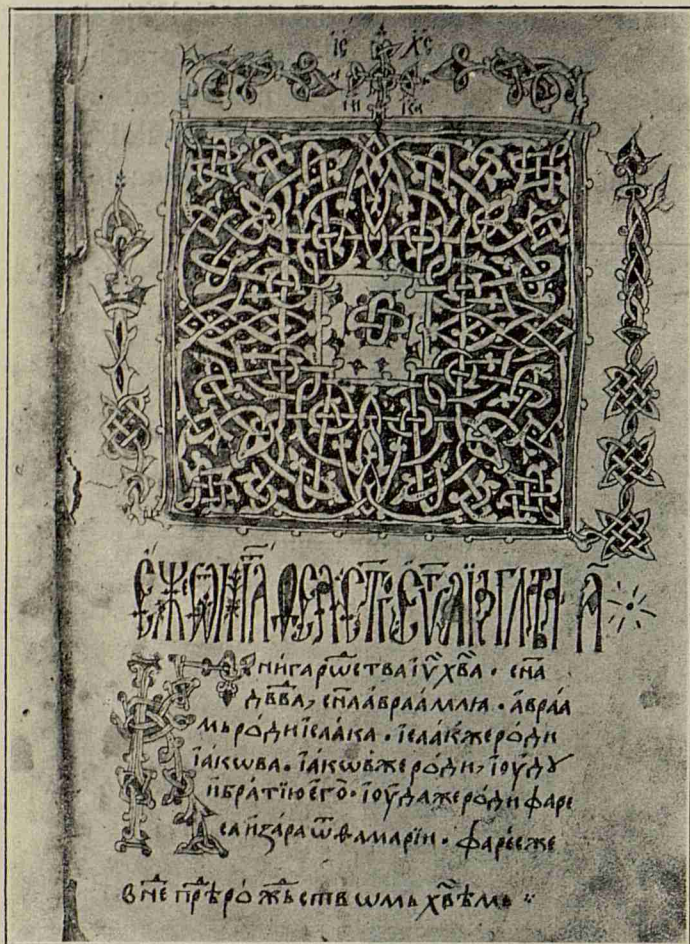 ІС ХС
НИ КА
Ѐже ѿ маⷴ҇ѳеа ст҃го еѵⷢ҇аⷩ҇гⷧ҇їа глава҃ а҃
Книга рѡⷤ҇ства іѵ҃ хⷭ҇ва · сн҃а
дв҃да, сн҃а авраамлꙗ · авраа
мь роди ісаака · ісаакже роди
іаковa · іакѡвже роди, іоуду
и братїю его · іоуда же роди фаре
са и зара ѿ ѳамари · фаресже
в неⷣ прѣⷣ рожⷣьствѡмь хв҃ѣмь